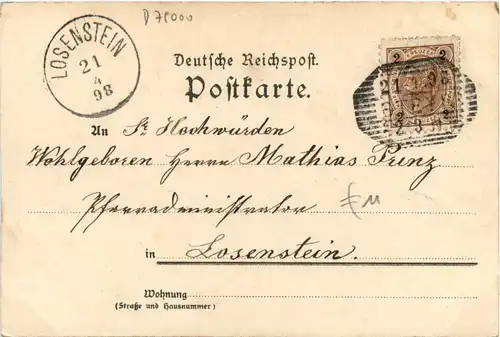 D 78000
LOSENSTEIN
21
4
98
Deutsche Reichspost.
Postkarte.
2 KREUZER 2
21 98
2 2
An Sr Hochwürden
Wohlgeboren Herrn Mathias Prinz
Pfarradministrator
€11
in Losenstein.
Wohnung
(Straße und Hausnummer)